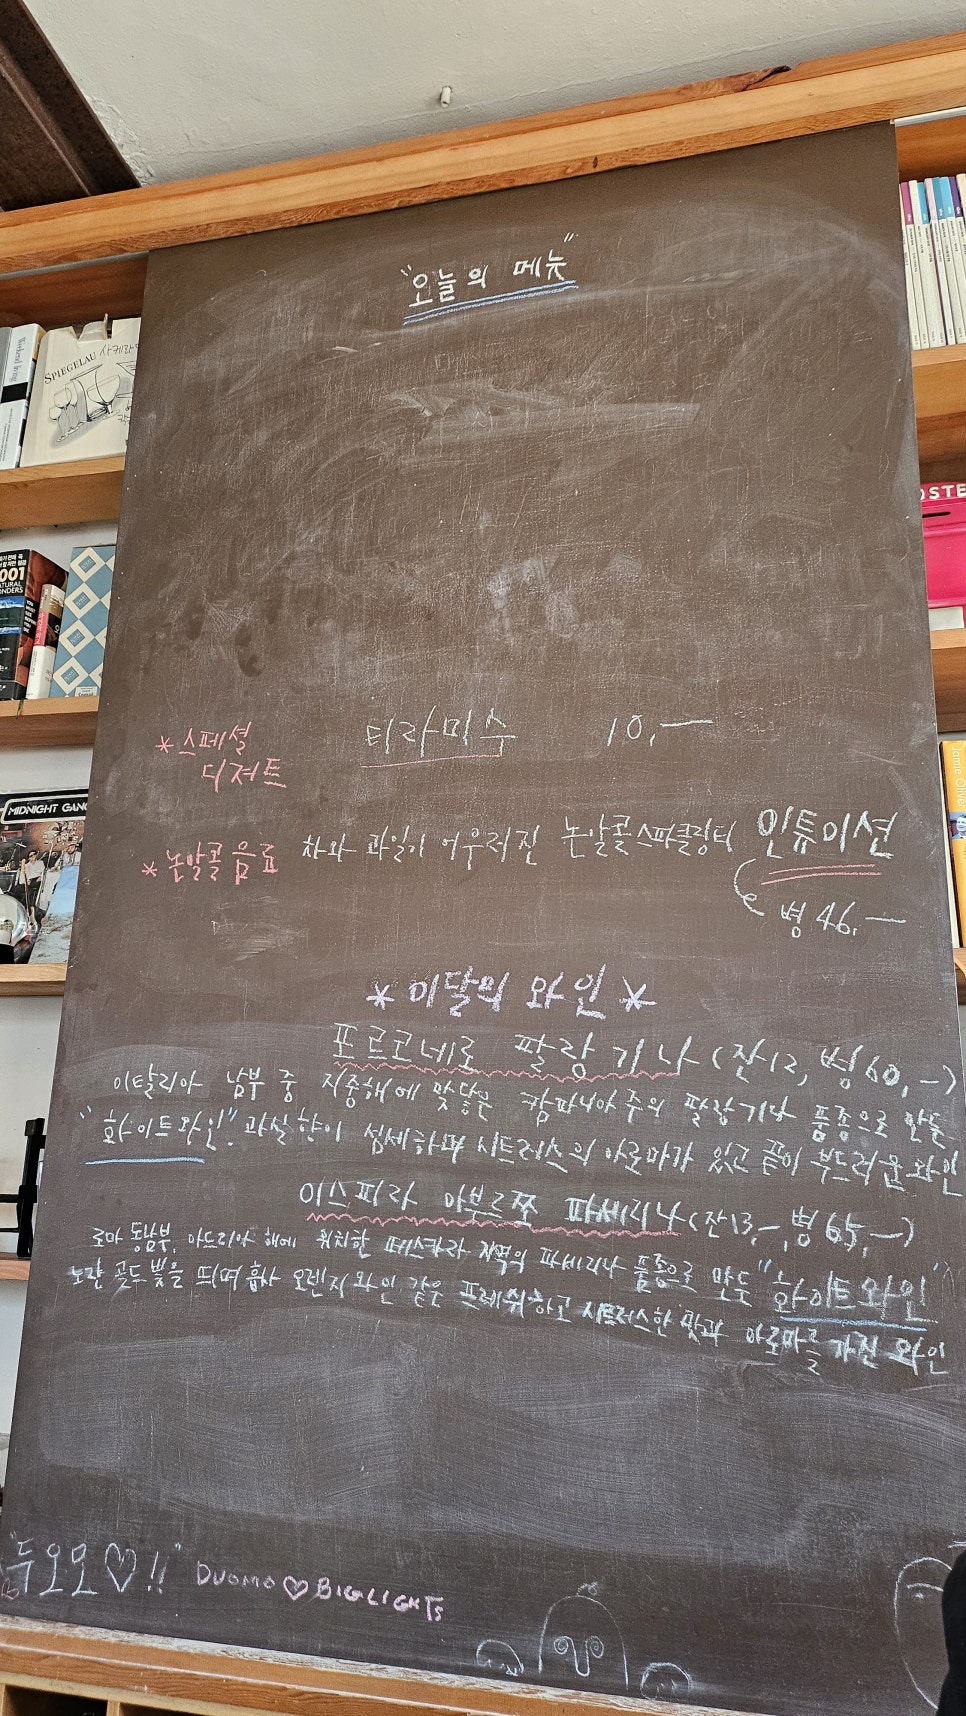 "오늘의 메뉴"
SPIEGELAU 사케라
001
NATURAL
WONDERS
OSTE
MIDNIGHT GANG
Jamie Oliver
*스페셜 티라미수 10,—
디저트
*논알콜 음료 차와 과일이 어우러진 논알콜스파클링티 인튜이션
병 46,—
*이달의 와인*
포르코네로 팔랑기나(잔12, 병60,—)
이탈리아 남부 중 지중해에 맞닿은 캄파니아주의 팔랑기나 품종으로 만든
"화이트와인". 과실향이 섬세하며 시트러스의 아로마가 있고 끝이 부드러운 와인
이스피라 아부르쪼 파세리나(잔13,—,병65,—)
로마 동남부, 아드리아 해에 위치한 페스카라 지역의 파세리나 품종으로 만든 "화이트와인"
노란 골드빛을 띄며 흡사 오렌지와인 같은 프레쉬하고 시트러스한 맛과 아로마를 가진 와인
"두오모♡!!" DUOMO♡BIGLIGHTS